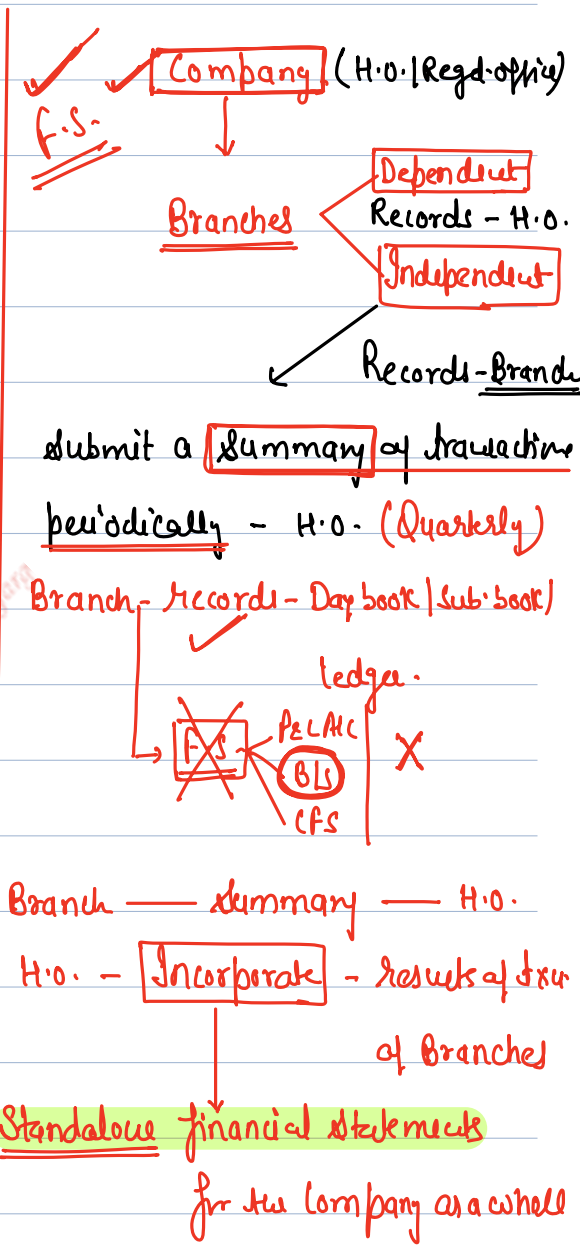 Company (H.O. | Regd. office)
F.S.
Dependent
Branches
Records - H.O.
Independent
Records - Branch
Submit a Summary of transactions
periodically - H.O. (Quarterly)
Branch - records - Day book | Sub. book |
ledger.
P&L A/C
F.S
B/S
X
CFS
Branch — Summary — H.O.
H.O. - Incorporate - results of txn
of Branches
Standalone financial statements
for the Company as a whole